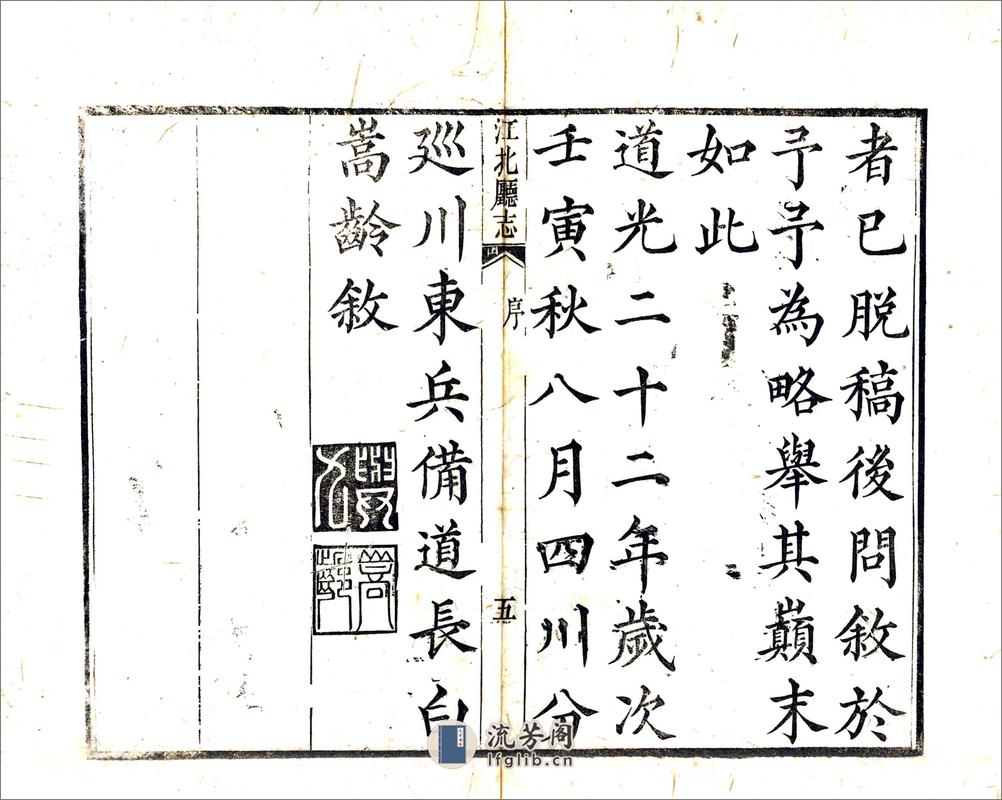 者已脫稿後問敘於
予予為略舉其巔末
如此
道光二十二年歲次
壬寅秋八月四川分
江北廳志
序
五
廵川東兵備道長白
嵩齡敘
嵩齡
流芳阁
lfglib.cn